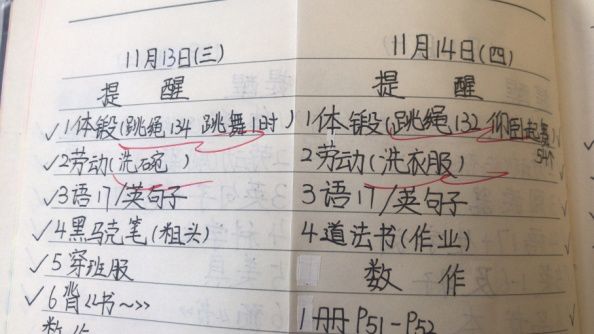 11月13日(三)
提 醒
✓1体锻(跳绳134 跳舞1时)
✓2劳动(洗碗)
✓3语17/英句子
✓4黑马克笔(粗头)
✓5穿班服
✓6背《书~>>
数作
11月14日(四)
提 醒
1体锻(跳绳132 仰卧起坐54个
2劳动(洗衣服)
3语17/英句子
4道法书(作业)
数 作
1册P51-P52